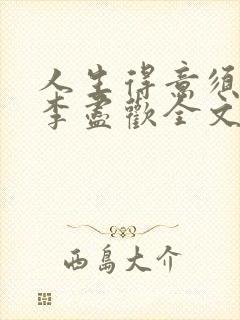 人生得意须
李盡歡全文
西島大介